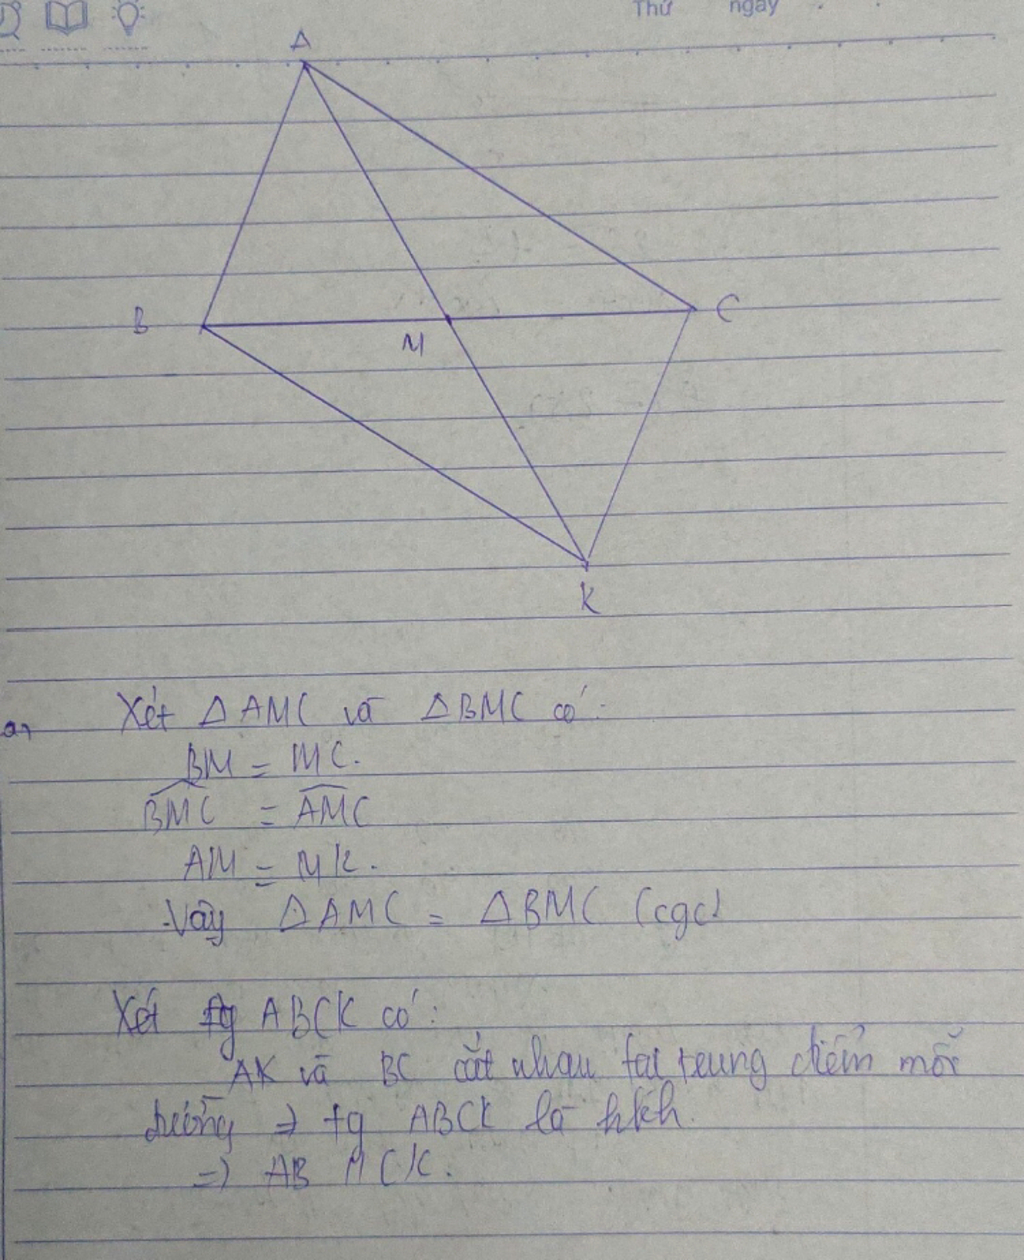 Thứ ngày
A
B
M
C
K
a, Xét Δ AMC và Δ BMC có:
BM = MC.
BMC = AMC
AM = MK.
Vậy Δ AMC = Δ BMC (cgc)
Xét tg ABCK có:
AK và BC cắt nhau tại trung điểm mỗi
đường => tg ABCK là hbh.
=> AB // CK.